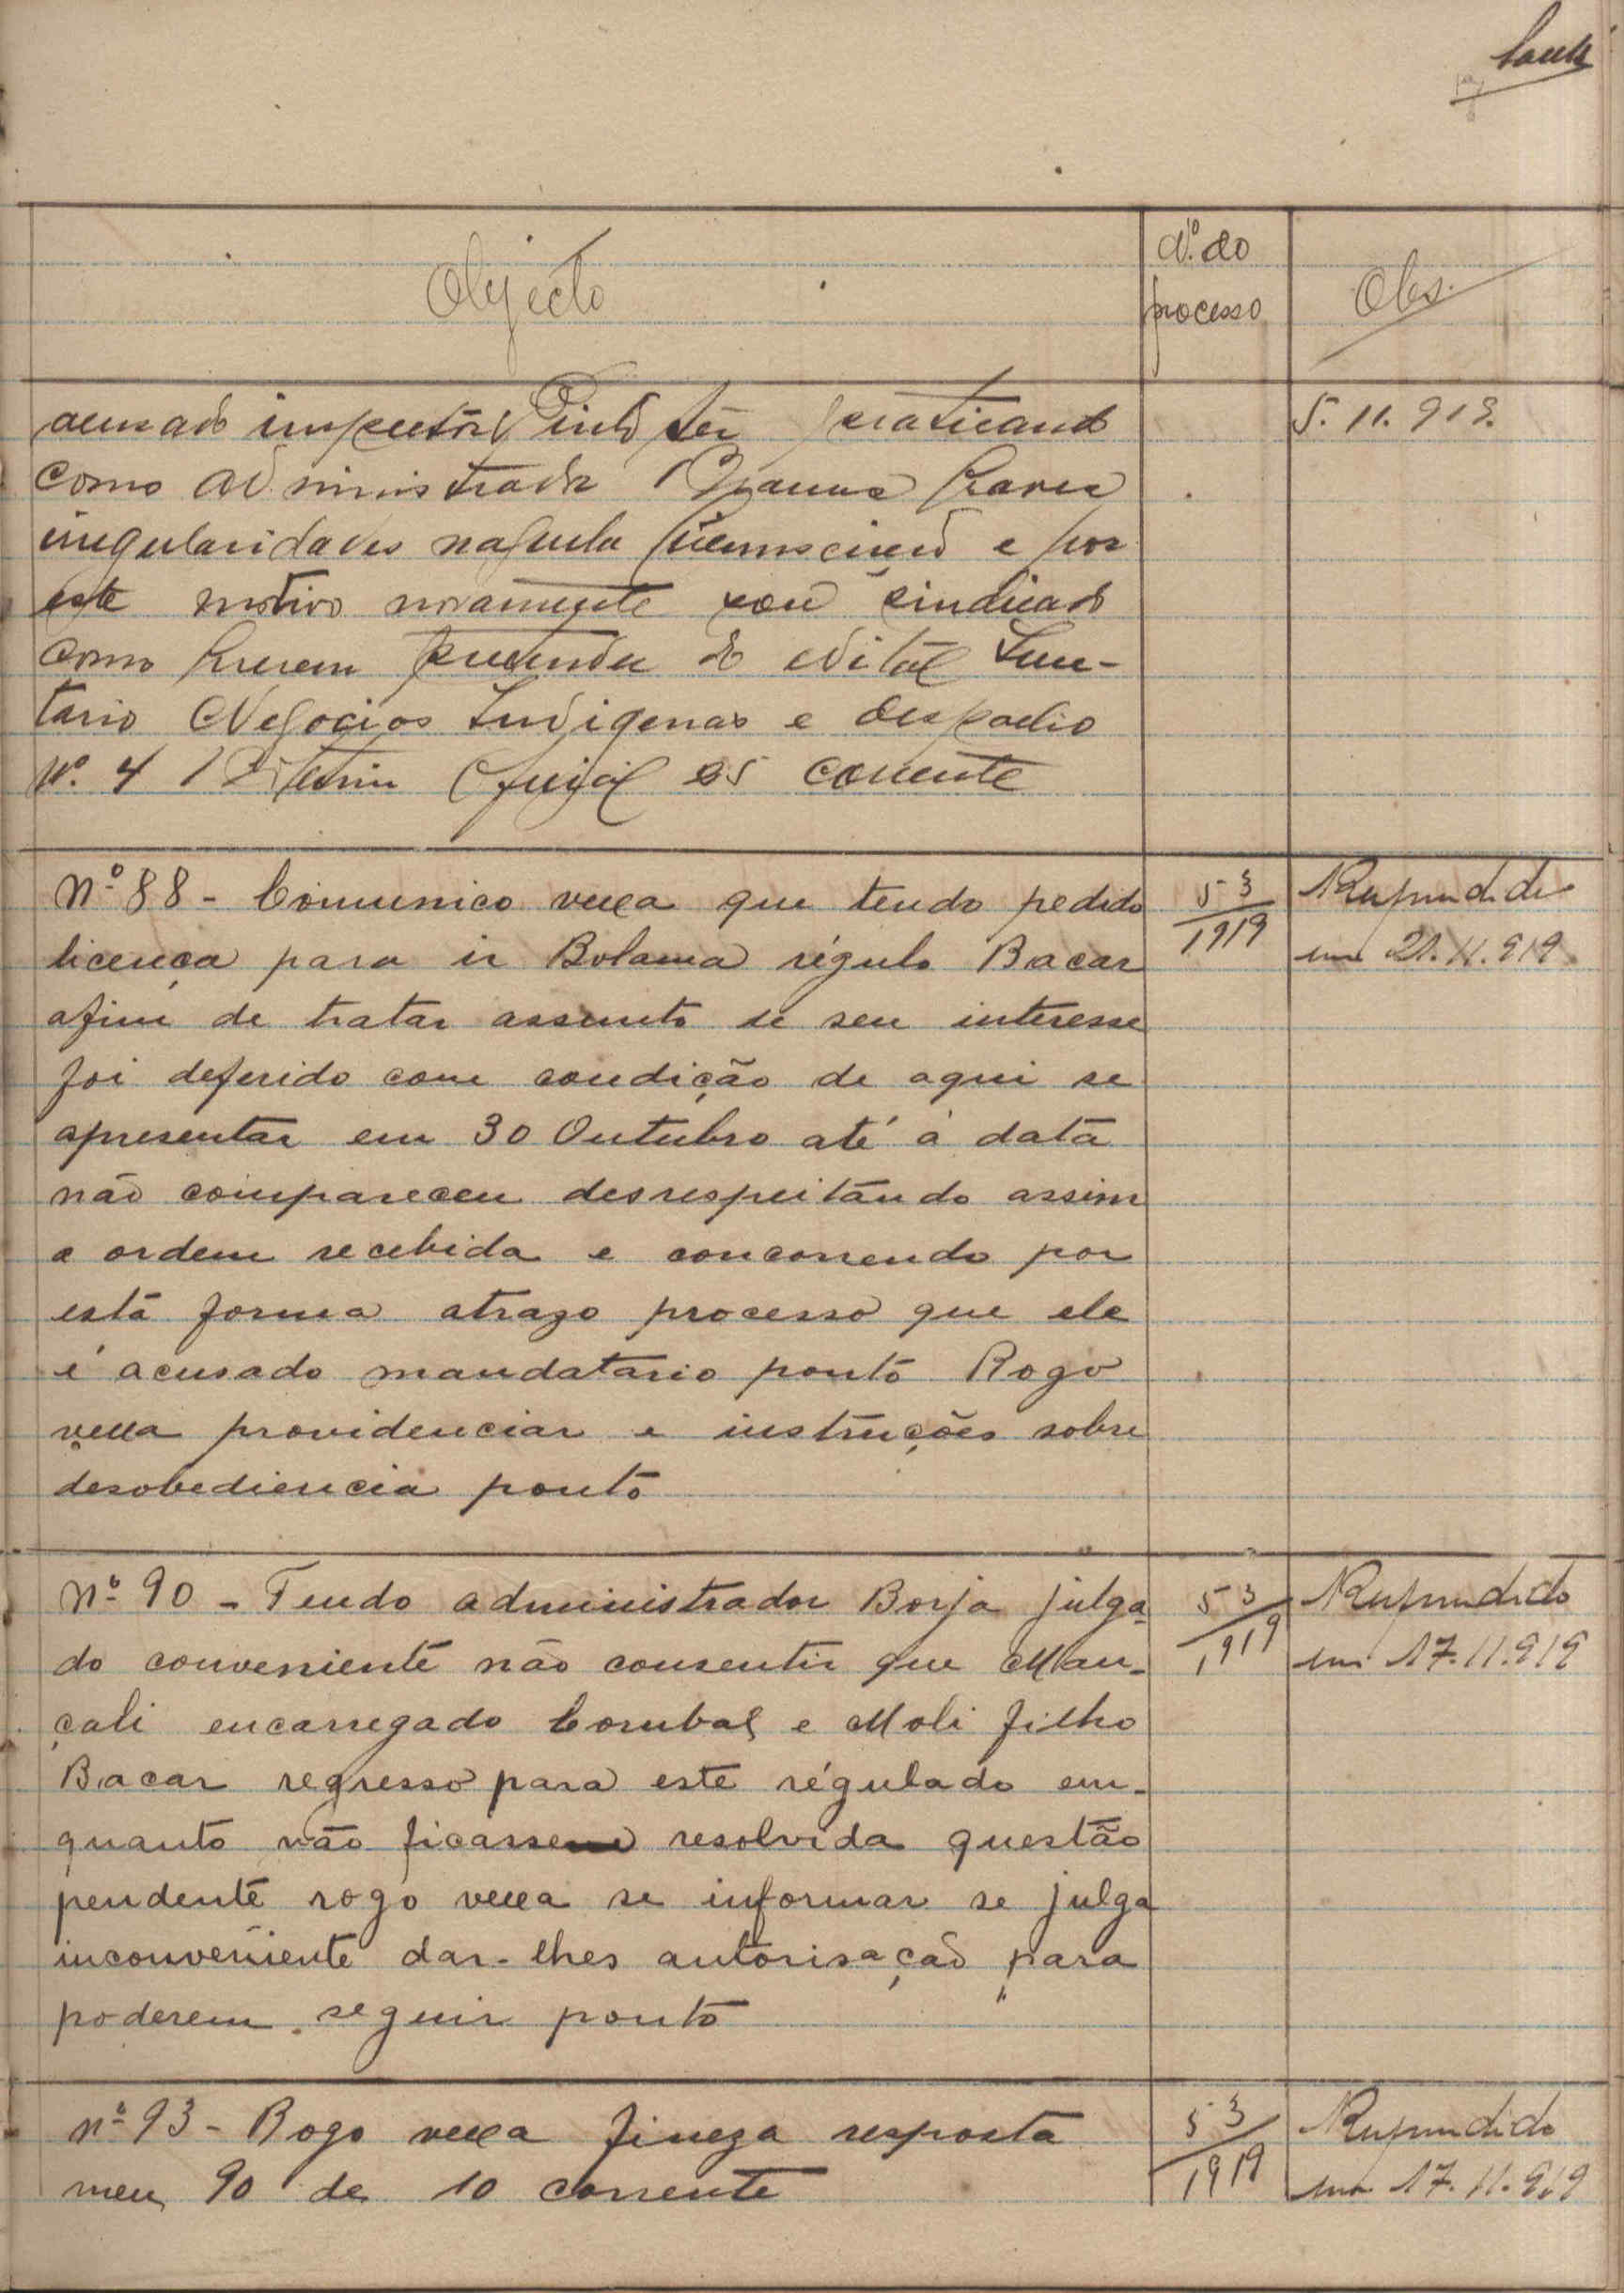 Objecto
Nº do
processo
Obs.
acusado inspector Pinto ter praticando
5.11.919.
como administrador
irregularidades naquela e por
este motivo novamente sou sindicado
como
tario Negocios Indigenas e despacho
Nº. 4 Oficial corrente
Nº 88 - Comunico vexa que tendo pedido
licença para ir Bolama régulo Bacar
afim de tratar assunto de seu interesse
foi deferido com condição de aqui se
apresentar em 30 Outubro até á data
não compareceu desrespeitando assim
a ordem recebida e concorrendo por
está forma atrazo processo que ele
é acusado mandatario ponto Rogo
vexa providenciar e instruções sobre
desobediencia ponto
53/1919
Respondido
em 21.11.919
Nº 90 - Tendo administrador Borja julga-
do conveniente não consentir que Man-
çali encarregado Corubal e Moli filho
Bacar regresso para este régulado em-
quanto não ficasse resolvida questão
pendente rogo vexa se informar se julga
inconveniente dar-lhes autorisação para
poderem seguir ponto
53/1919
Respondido
em 17.11.919
nº 93 - Rogo vexa fineza resposta
meu 90 de 10 corrente
53/1919
Respondido
em 17.11.919